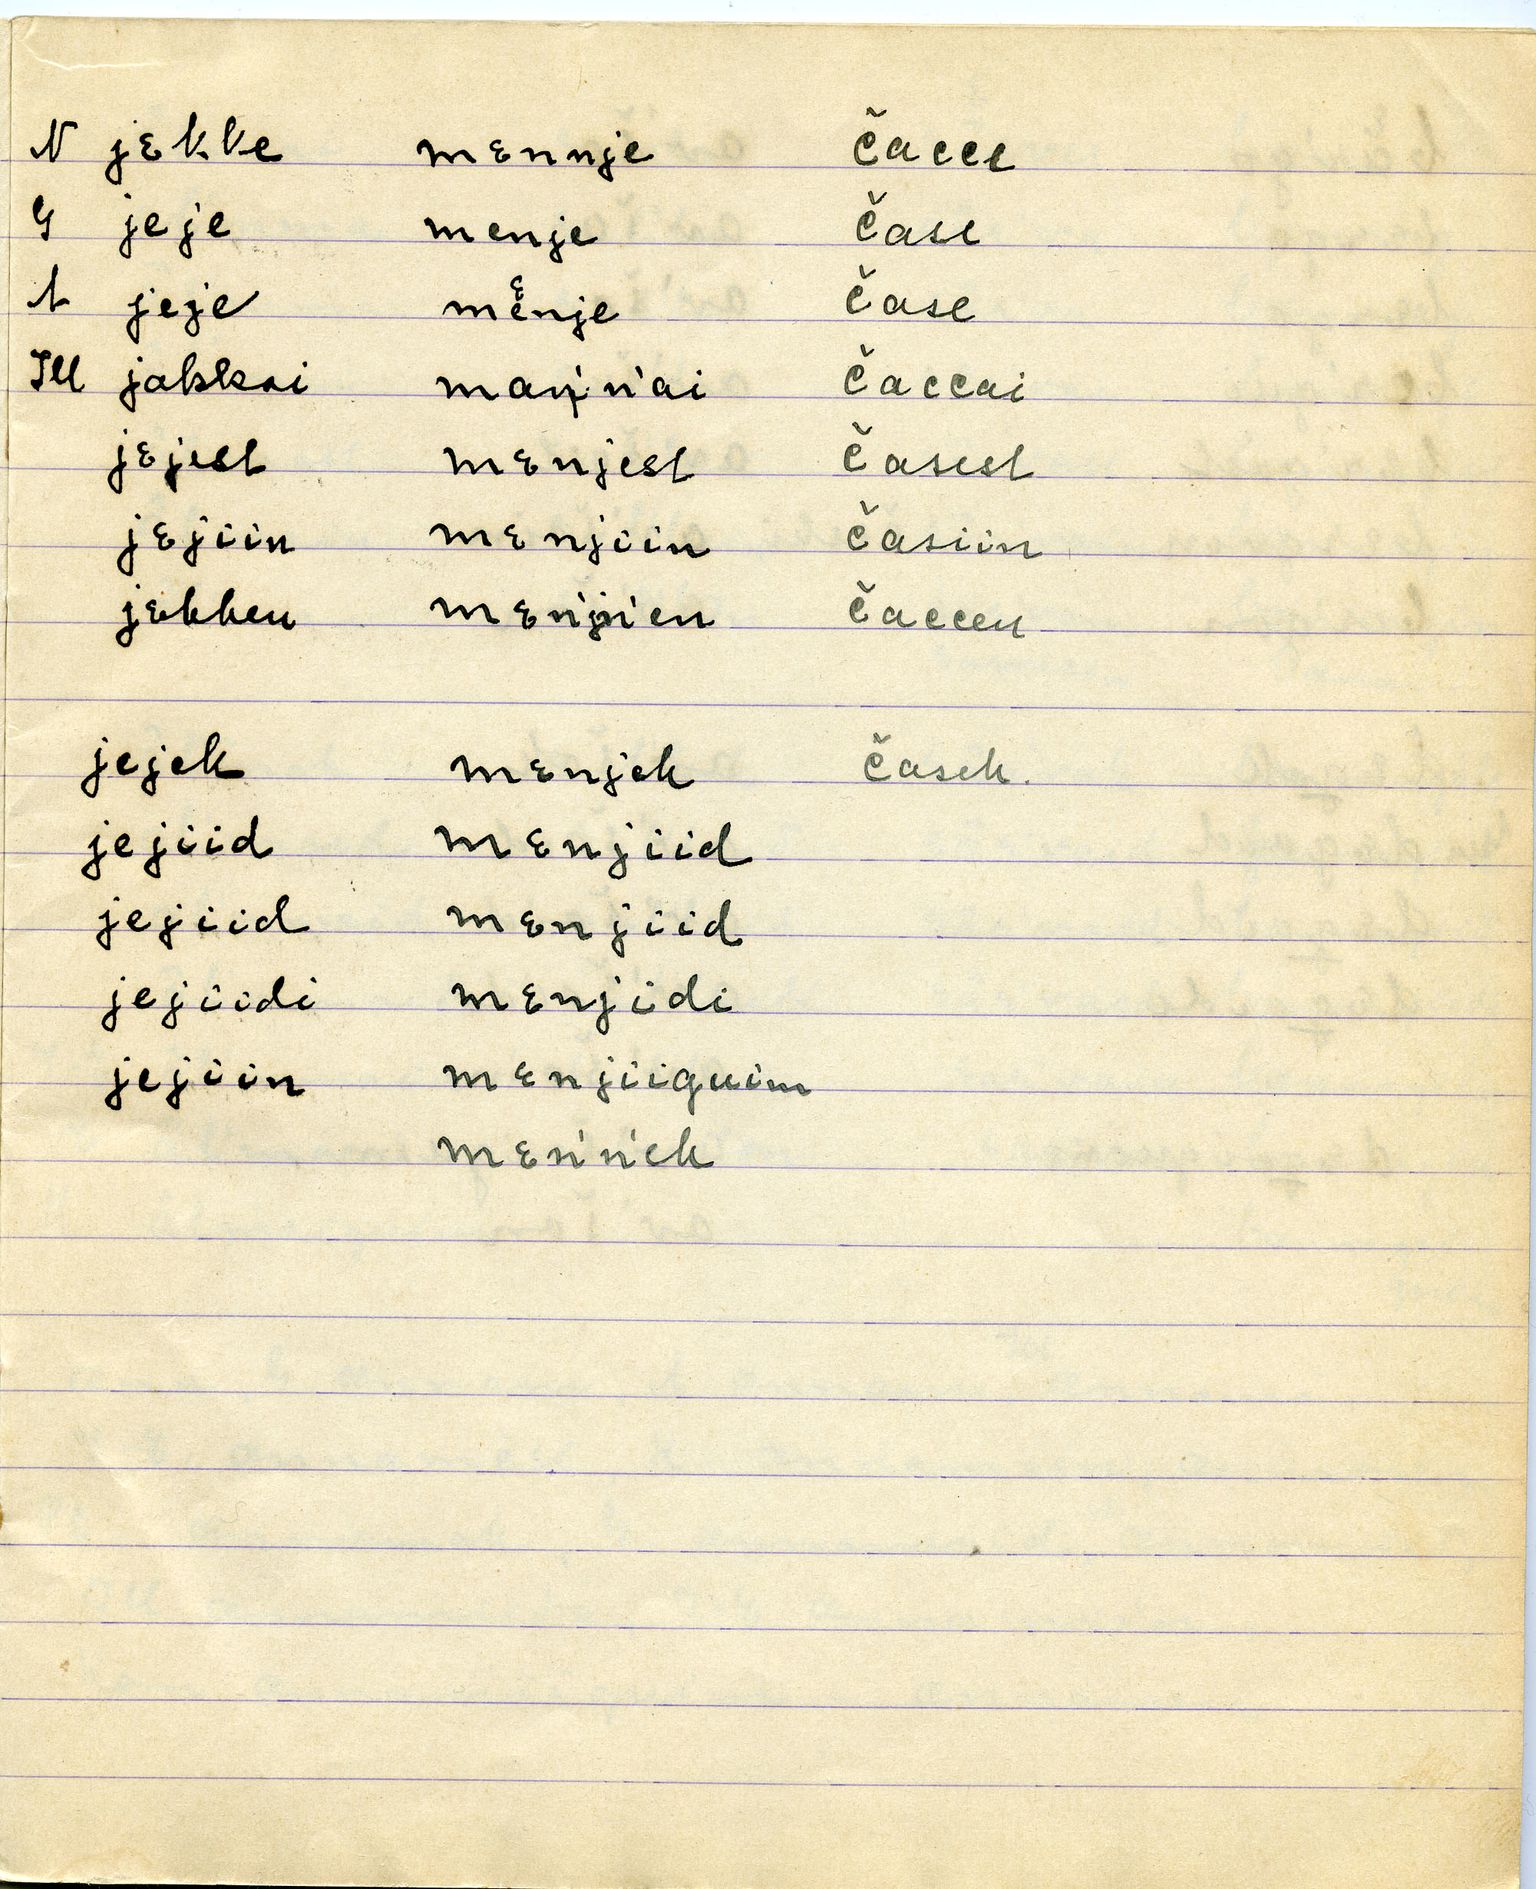 N jɛkke mɛnnje čacce
G jeje menje čase
A jeje mɛnje čase
Ill jakkai mań'n'ai čaccai
jɛjest mɛnjest časest
jɛjiin mɛnjiin časiin
jɛkken mɛn'n'en čaccen
jejek mɛnjek časek.
jejiid mɛnjiid
jejiid mɛnjiid
jejiidi mɛnjidi
jejiin mɛnjiiguim
mɛn'n'ek